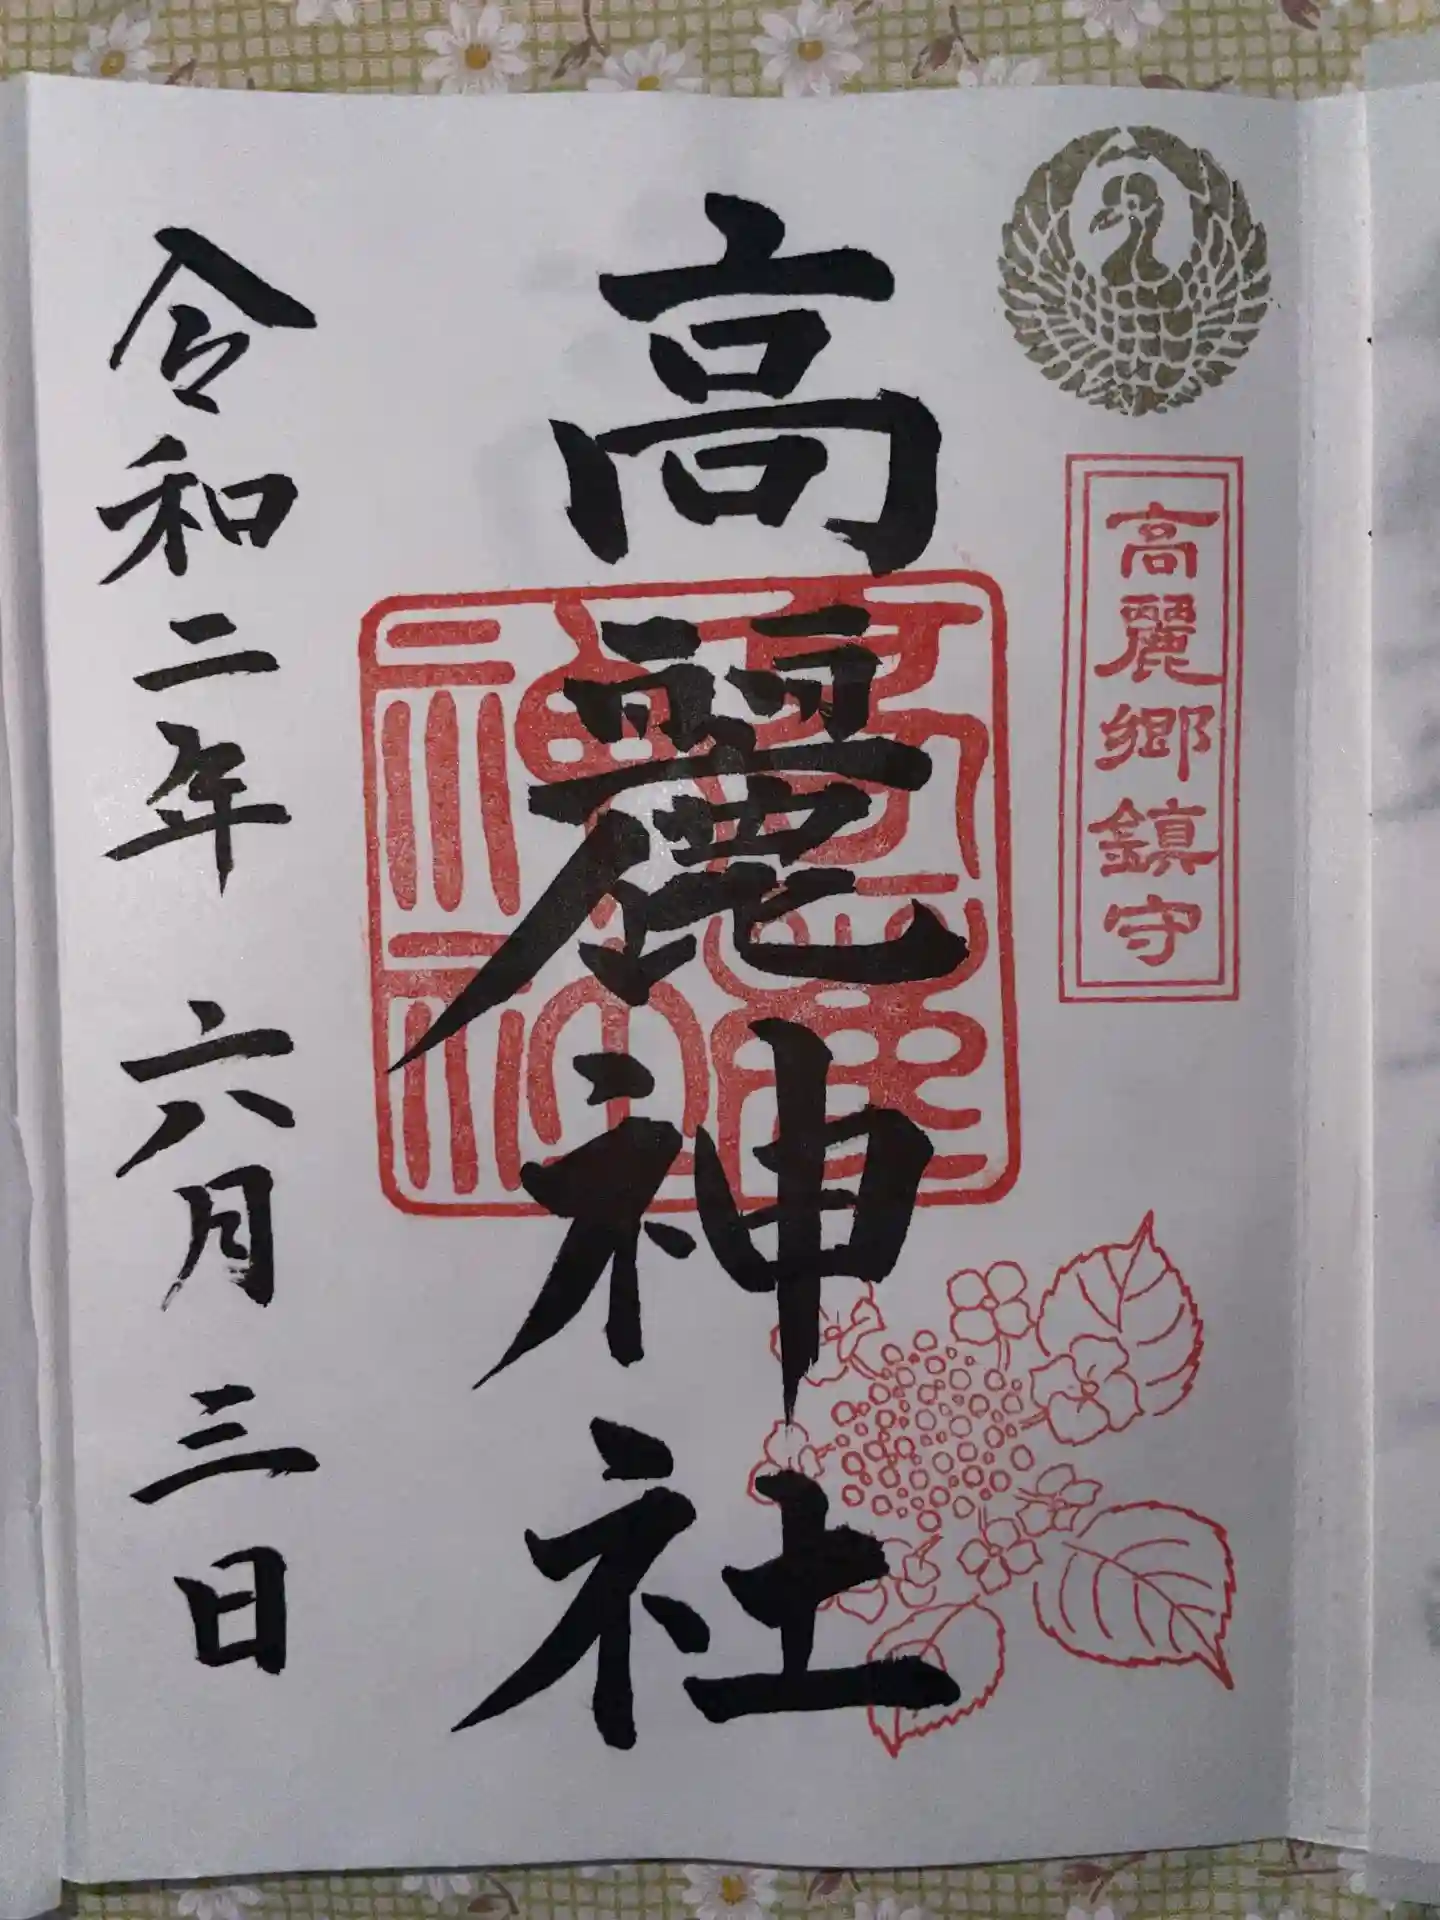 高麗郷鎮守
高麗神社
高麗神社
令和二年 六月 三日